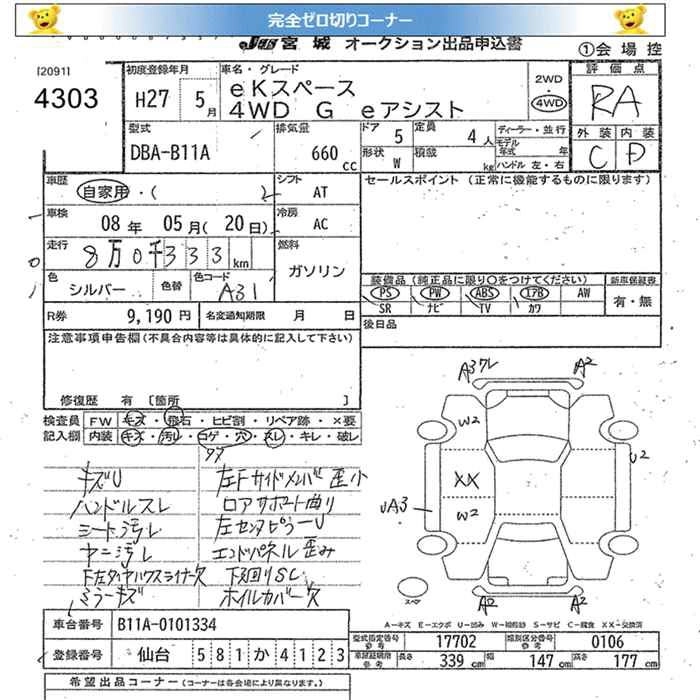 完全ゼロ切りコーナー
JU 宮城 オークション出品申込書
①会場控
[2091]
4303
初度登録年月
H27 5月
車名・グレード
eKスペース
4WD G eアシスト
2WD
・
4WD
評価点
RA
外装 内装
C D
型式
DBA-B11A
排気量
660 cc
ドア 5
定員 4人
形状 W
積載 kg
ディーラー・並行
モデル年式 年
ハンドル 左・右
車歴
自家用・( )
シフト
AT
セールスポイント (正常に機能するものに限ります)
車検
08年 05月(20日)
冷房
AC
走行
8万0千333km
燃料
ガソリン
色
シルバー
色替
色コード
A31
装備品(純正品に限り○をつけてください)
新車保証書
PS PW ABS エアB AW
SR ナビ TV カワ
有・無
R券 9,190円
名変通知期限 月 日
後日品
注意事項申告欄(不具合箇所等は具体的に記入して下さい)
修復歴 有 [箇所 ]
検査員 FW キズ・飛石・ヒビ割・リペア跡・×要
記入欄 内装 キズ・汚レ・コゲ・穴・スレ・キレ・破レ
キズU
ハンドルスレ
シート汚レ
ヤニ汚レ
下左タイヤハウスライナー欠
ミラーキズ
左Fサイドメンバ歪小
ロアサポート曲り
左センタピラーU
エンドパネル歪み
下回りSC
ホイルカバー欠
A3ワレ
A2
W2
U2
XX
UA3
W2
A2
A2
スペア
A=キズ E=エクボ U=凹み W=補修跡 S=サビ C=腐食 XX=交換済
車台番号 B11A-0101334
登録番号 仙台 581か4123
型式指定番号 参考 17702
類別区分番号 参考 0106
車庫証明用 参考
長さ 339 cm
幅 147 cm
高さ 177 cm
希望出品コーナー (コーナーは各会場により異なります。)